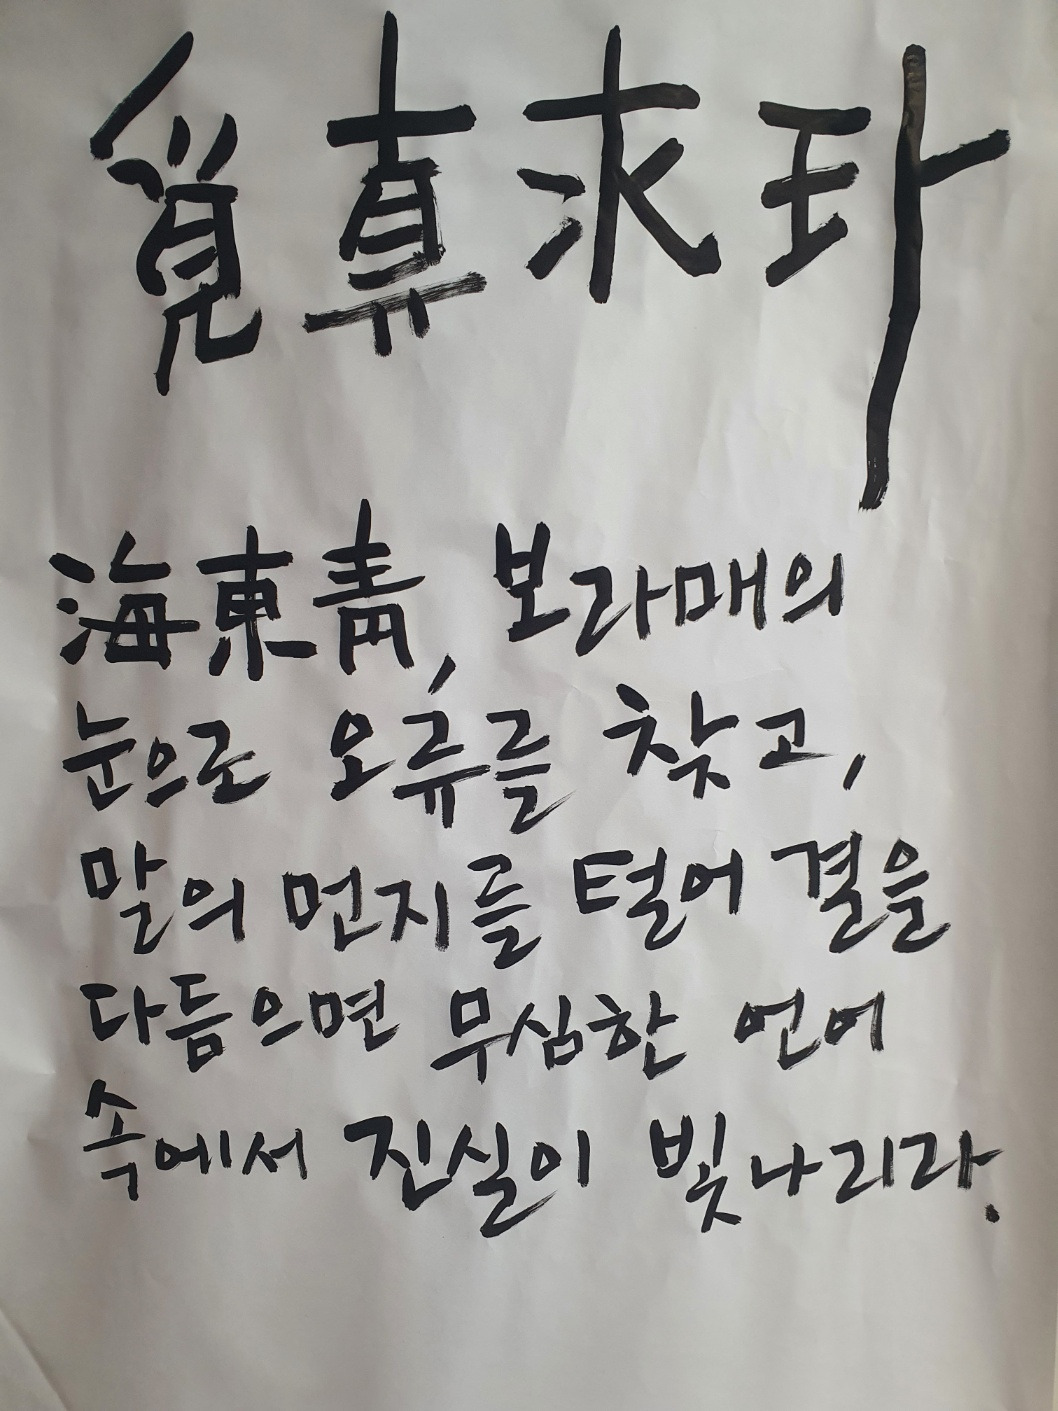 覓真求玤
海東靑, 보라매의
눈으로 오류를 찾고,
말의 먼지를 털어 결을
다듬으면 무심한 언어
속에서 진실이 빛나리라.